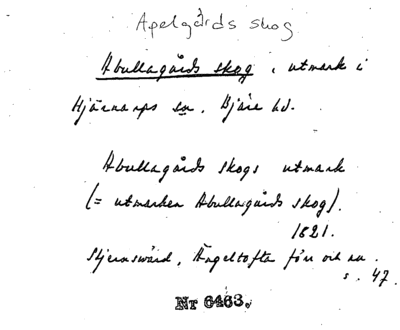 Apelgårds skog
Abullagårds skog, utmark i
Hjärnarps sn, Bjäre hd.
Abullagårds skogs utmark
(= utmarken Abullagårds skog).
1821.
Stjernswärd, Ängeltofta förr och nu.
s. 47.
Nr 6463.